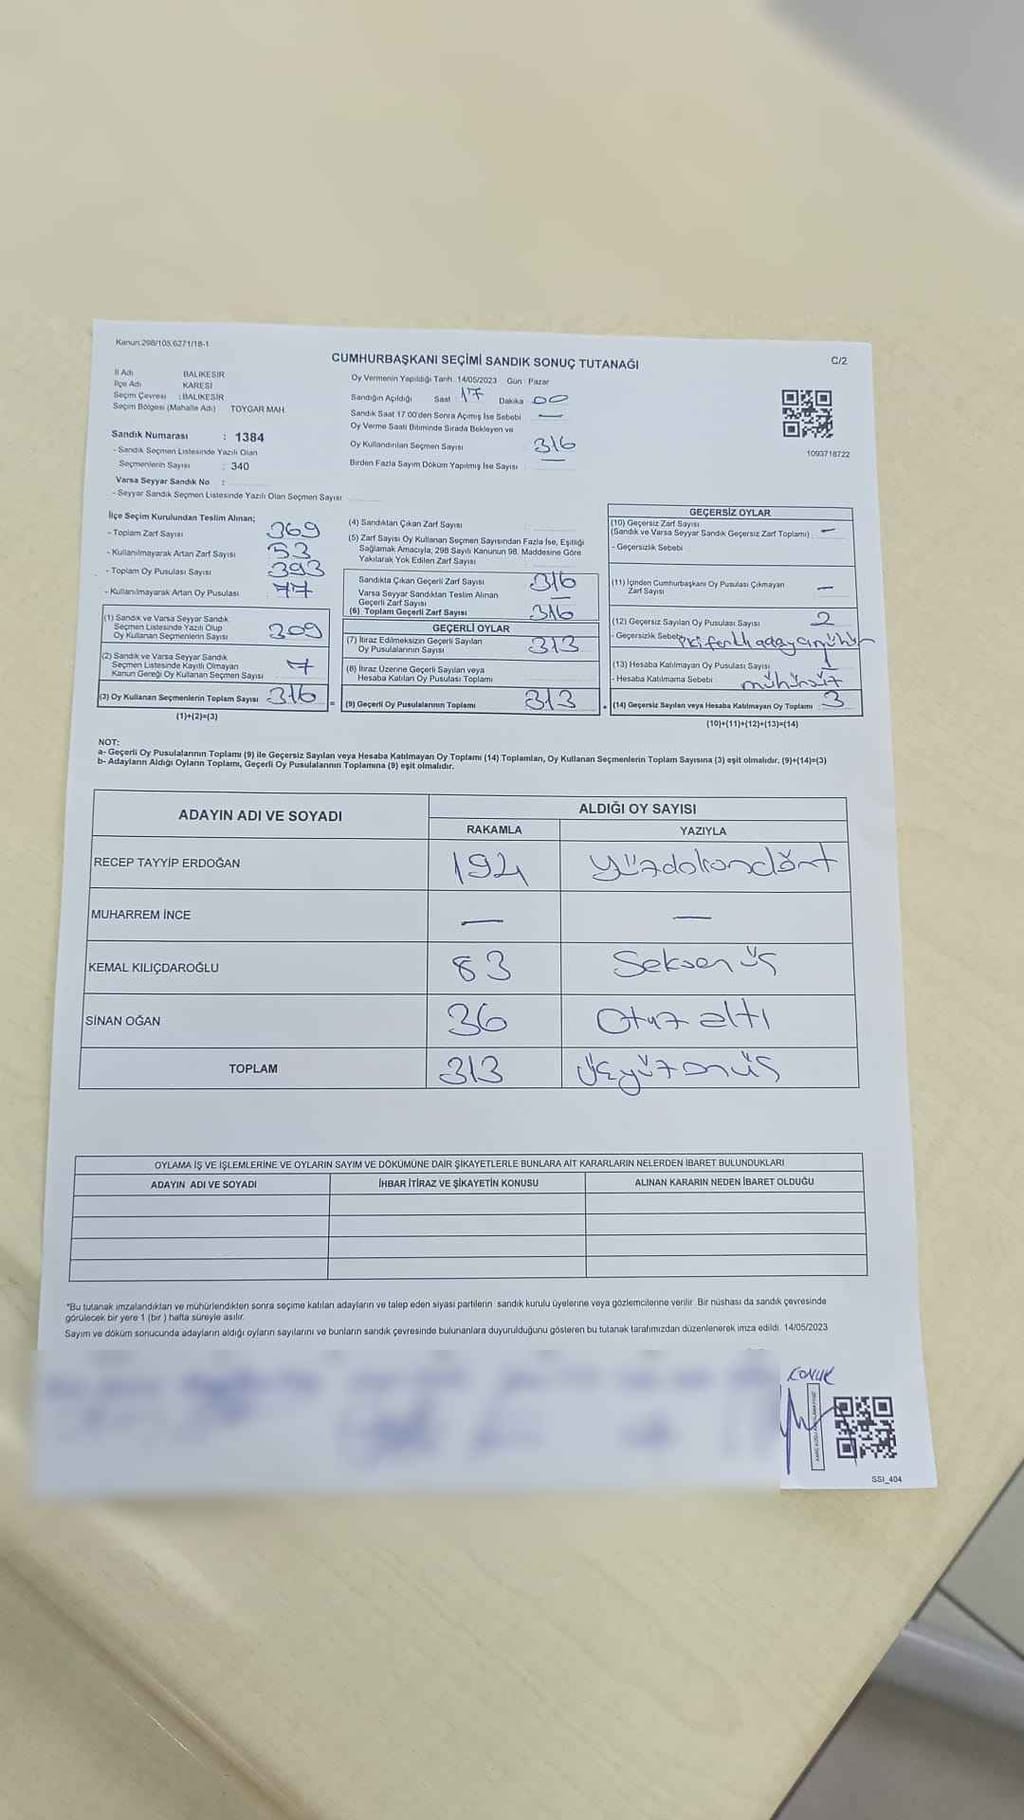 Kanun:298/105,6271/18-1
CUMHURBAŞKANI SEÇİMİ SANDIK SONUÇ TUTANAĞI
C/2
İl Adı BALIKESİR
İlçe Adı KARESİ
Seçim Çevresi :BALIKESİR
Seçim Bölgesi (Mahalle Adı) TOYGAR MAH.
Sandık Numarası : 1384
- Sandık Seçmen Listesinde Yazılı Olan
Seçmenlerin Sayısı : 340
Varsa Seyyar Sandık No :
- Seyyar Sandık Seçmen Listesinde Yazılı Olan Seçmen Sayısı
Oy Vermenin Yapıldığı Tarih :14/05/2023 Gün : Pazar
Sandığın Açıldığı Saat 17 Dakika 00
Sandık Saat 17.00'den Sonra Açımış İse Sebebi —
Oy Verme Saati Bitiminde Sırada Bekleyen ve
Oy Kullandırılan Seçmen Sayısı 316
Birden Fazla Sayım Döküm Yapılmış İse Sayısı —
1093718722
İlçe Seçim Kurulundan Teslim Alınan;
- Toplam Zarf Sayısı 369
- Kullanılmayarak Artan Zarf Sayısı 53
- Toplam Oy Pusulası Sayısı 393
- Kullanılmayarak Artan Oy Pusulası 77
(1) Sandık ve Varsa Seyyar Sandık
Seçmen Listesinde Yazılı Olup
Oy Kullanan Seçmenlerin Sayısı 309
(2) Sandık ve Varsa Seyyar Sandık
Seçmen Listesinde Kayıtlı Olmayan
Kanun Gereği Oy Kullanan Seçmen Sayısı 7
(3) Oy Kullanan Seçmenlerin Toplam Sayısı 316
(1)+(2)=(3)
(4) Sandıktan Çıkan Zarf Sayısı
(5) Zarf Sayısı Oy Kullanan Seçmen Sayısından Fazla İse, Eşitliği
Sağlamak Amacıyla, 298 Sayılı Kanunun 98. Maddesine Göre
Yakılarak Yok Edilen Zarf Sayısı
Sandıkta Çıkan Geçerli Zarf Sayısı 316
Varsa Seyyar Sandıktan Teslim Alınan
Geçerli Zarf Sayısı —
(6) Toplam Geçerli Zarf Sayısı 316
GEÇERLİ OYLAR
(7) İtiraz Edilmeksizin Geçerli Sayılan
Oy Pusulalarının Sayısı 313
(8) İtiraz Üzerine Geçerli Sayılan veya
Hesaba Katılan Oy Pusulaları Toplamı
= (9) Geçerli Oy Pusulalarının Toplamı 313
GEÇERSİZ OYLAR
(10) Geçersiz Zarf Sayısı
(Sandık ve Varsa Seyyar Sandık Geçersiz Zarf Toplamı) —
- Geçersizlik Sebebi
(11) İçinden Cumhurbaşkanı Oy Pusulası Çıkmayan
Zarf Sayısı —
(12) Geçersiz Sayılan Oy Pusulası Sayısı 2
- Geçersizlik Sebebi adaya mühür
(13) Hesaba Katılmayan Oy Pusulası Sayısı 1
- Hesaba Katılmama Sebebi
+ (14) Geçersiz Sayılan veya Hesaba Katılmayan Oy Toplamı 3
(10)+(11)+(12)+(13)=(14)
NOT:
a- Geçerli Oy Pusulalarının Toplamı (9) ile Geçersiz Sayılan veya Hesaba Katılmayan Oy Toplamı (14) Toplamları, Oy Kullanan Seçmenlerin Toplam Sayısına (3) eşit olmalıdır. (9)+(14)=(3)
b- Adayların Aldığı Oyların Toplamı, Geçerli Oy Pusulalarının Toplamına (9) eşit olmalıdır.
ADAYIN ADI VE SOYADI ALDIĞI OY SAYISI
RAKAMLA YAZIYLA
RECEP TAYYİP ERDOĞAN 194 yüzdoksandört
MUHARREM İNCE — —
KEMAL KILIÇDAROĞLU 83 Seksen üç
SİNAN OĞAN 36 Otuz altı
TOPLAM 313 üçyüzonüç
OYLAMA İŞ VE İŞLEMLERİNE VE OYLARIN SAYIM VE DÖKÜMÜNE DAİR ŞİKAYETLERLE BUNLARA AİT KARARLARIN NELERDEN İBARET BULUNDUKLARI
ADAYIN ADI VE SOYADI İHBAR İTİRAZ VE ŞİKAYETİN KONUSU ALINAN KARARIN NEDEN İBARET OLDUĞU
*Bu tutanak imzalandıktan ve mühürlendikten sonra seçime katılan adayların ve talep eden siyasi partilerin sandık kurulu üyelerine veya gözlemcilerine verilir. Bir nüshası da sandık çevresinde
görülecek bir yere 1 (bir ) hafta süreyle asılır.
Sayım ve döküm sonucunda adayların aldığı oyların sayılarını ve bunların sandık çevresinde bulunanlara duyurulduğunu gösteren bu tutanak tarafımızdan düzenlenerek imza edildi. 14/05/2023
SSI_404